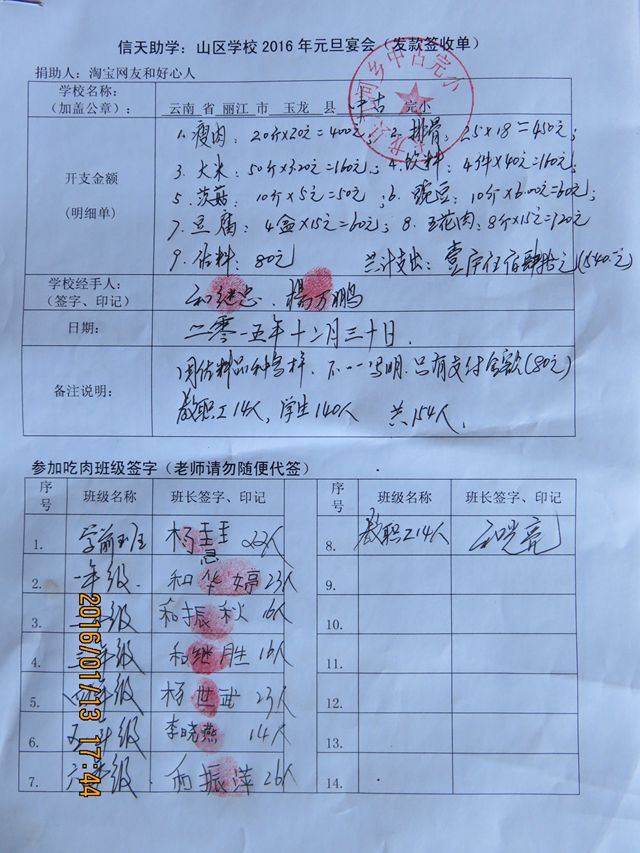 信天助学：山区学校 2016 年元旦宴会（发款签收单）
捐助人：淘宝网友和好心人
学校名称：
（加盖公章）：
云南 省 丽江 市 玉龙 县 中古 完小
开支金额
（明细单）
1. 瘦肉：20斤×20元=400元； 2. 排骨：25×18=450元；
3. 大米：50斤×3.20元=160元； 4. 饮料：4件×40元=160元；
5. 茨菇：10斤×5元=50元； 6. 豌豆：10斤×6.00元=60元；
7. 豆腐：4盒×15元=60元； 8. 五花肉：8斤×15元=120元
9. 佐料：80元 共计支出：壹仟伍佰肆拾元(1540.元)
学校经手人：
（签字、印记）
和继忠、杨万鹏
日期：
二零一五年十二月三十日.
备注说明：
因佐料品种多样，不一一写明.只有支付金额(80元)
教职工14人，学生140人 共154人.
参加吃肉班级签字（老师请勿随便代签）
序号 班级名称 班长签字、印记 序号 班级名称 班长签字、印记
1. 学前班 杨圭 22人 8. 教职工14人 和光亮
2. 一年级 和华婷 23人 9.
3. 年级 和振秋 16人 10.
4. 三年级 和继胜 16人 11.
5. 四年级 杨世武 23人 12.
6. 五年级 李晓燕 14人 13.
7. 六年级 和振萍 26人 14.
2016/01/13 17:44